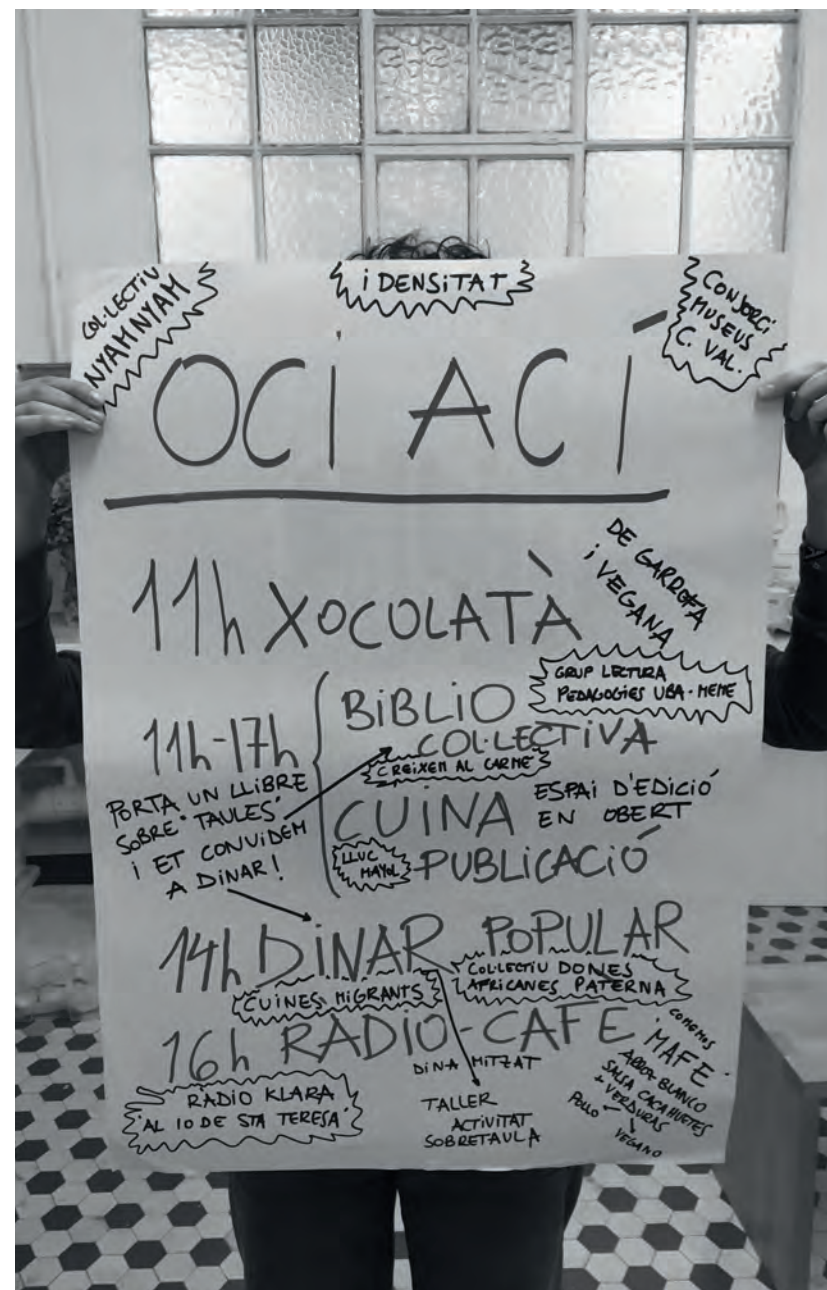 COL·LECTIU
NYAMNYAM
iDENSiTAT
CONSORCi
MUSEUS
C. VAL.
OCI ACÍ
11h XOCOLATÀ
DE GARROFA
i VEGANA
11h-17h
BiBLiO
COL·LECTiVA
GRUP LECTURA
PEDAGOGIES UBA-MEME
CREIXEM AL CARME
PORTA UN LLIBRE
SOBRE "TAULES"
i ET CONVIDEM
A DINAR!
CUiNA
ESPAi D'EDICIÓ
EN OBERT
LLUC
MAYOL
PUBLiCACIÓ
14h DiNAR POPULAR
CUINES MIGRANTS
COL·LECTIU DONES
AFRICANES PATERNA
16h RÀDIO-CAFÉ
RADIO KLARA
"AL 10 DE STA TERESA"
DiNAMITZAT
TALLER
ACTIVITAT
SOBRETAULA
COMEMOS
MAFE
ARROZ BLANCO
SALSA CACAHUETES
+ VERDURAS
POLLO
VEGANO